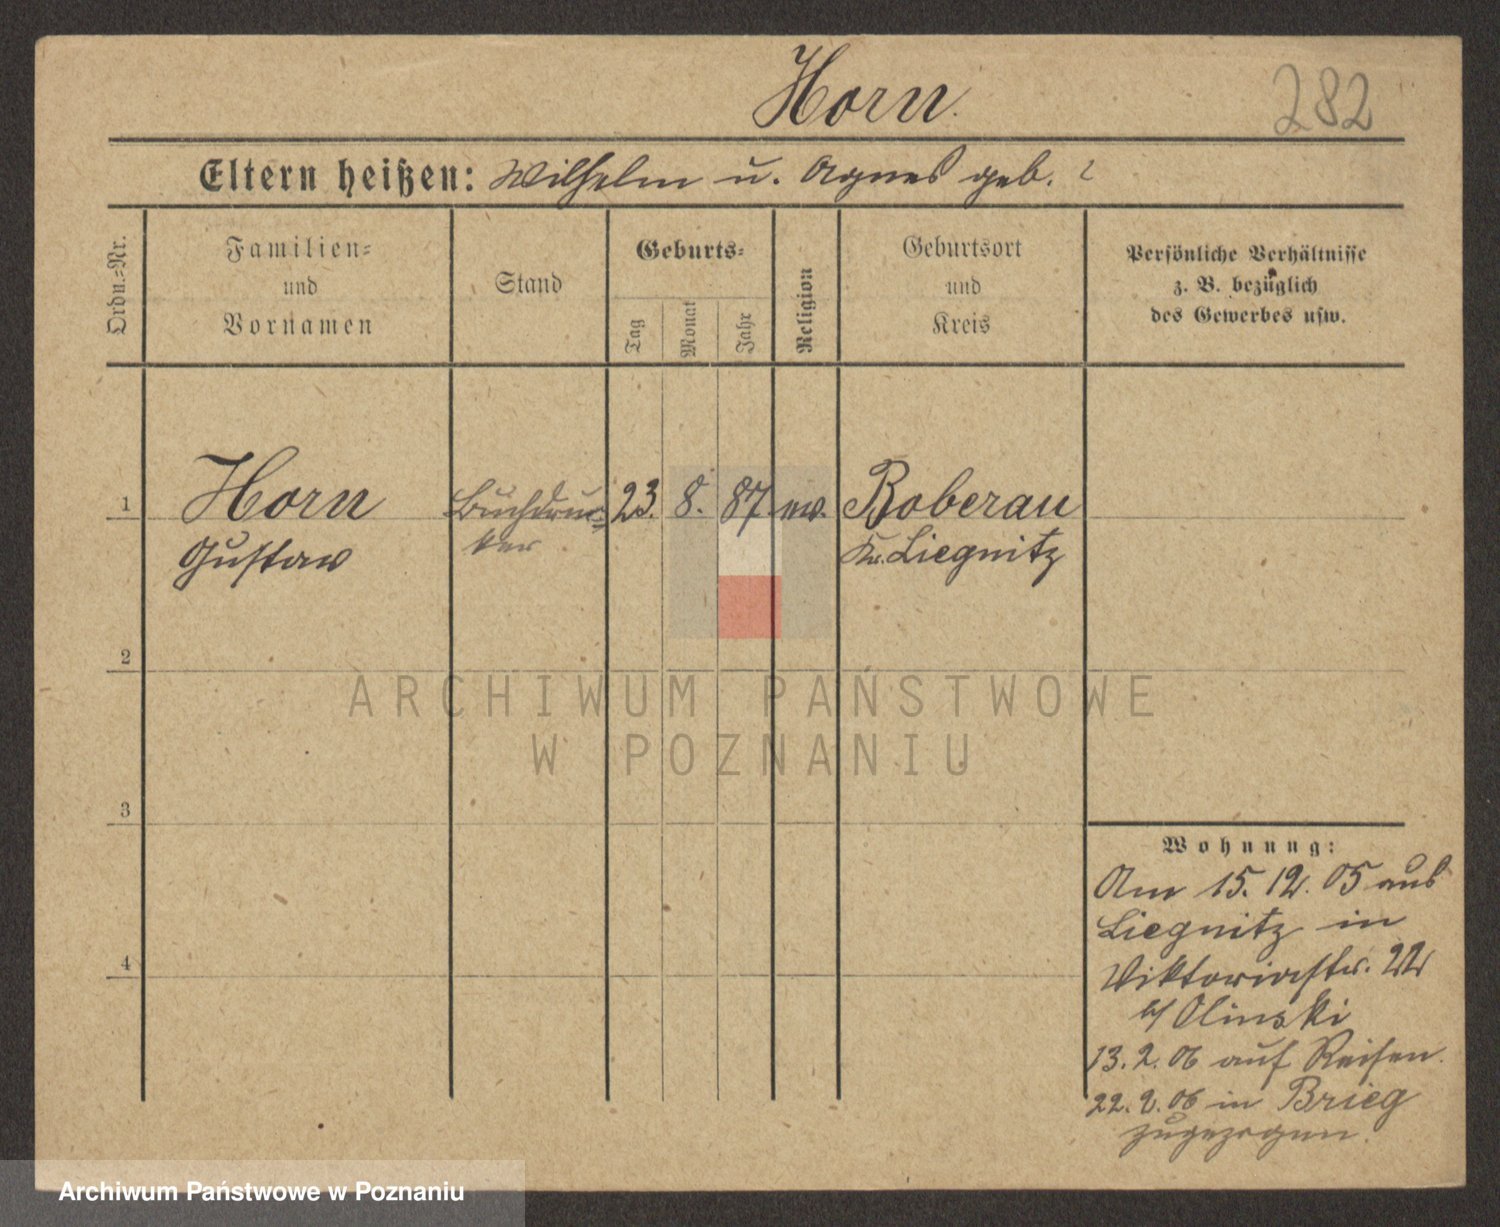 Horn.
282
Eltern heißen: Wilhelm u. Agnes geb. ?
Ordn.=Nr.
Familien=
und
Vornamen
Stand
Geburts=
Tag
Monat
Jahr
Religion
Geburtsort
und
Kreis
Persönliche Verhältnisse
z. B. bezüglich
des Gewerbes usw.
1
Horn
Gustav
Buchdruc=
ker
23.
8.
87
ev.
Boberau
Kr. Liegnitz
2
ARCHIWUM PAŃSTWOWE
W POZNANIU
3
4
Wohnung:
Am 15. 12. 05 aus
Liegnitz in
Viktoriastr. 22
b/ Olinski
13. 2. 06 auf Reisen.
22. 2. 06 in Brieg
zugezogen.
Archiwum Państwowe w Poznaniu